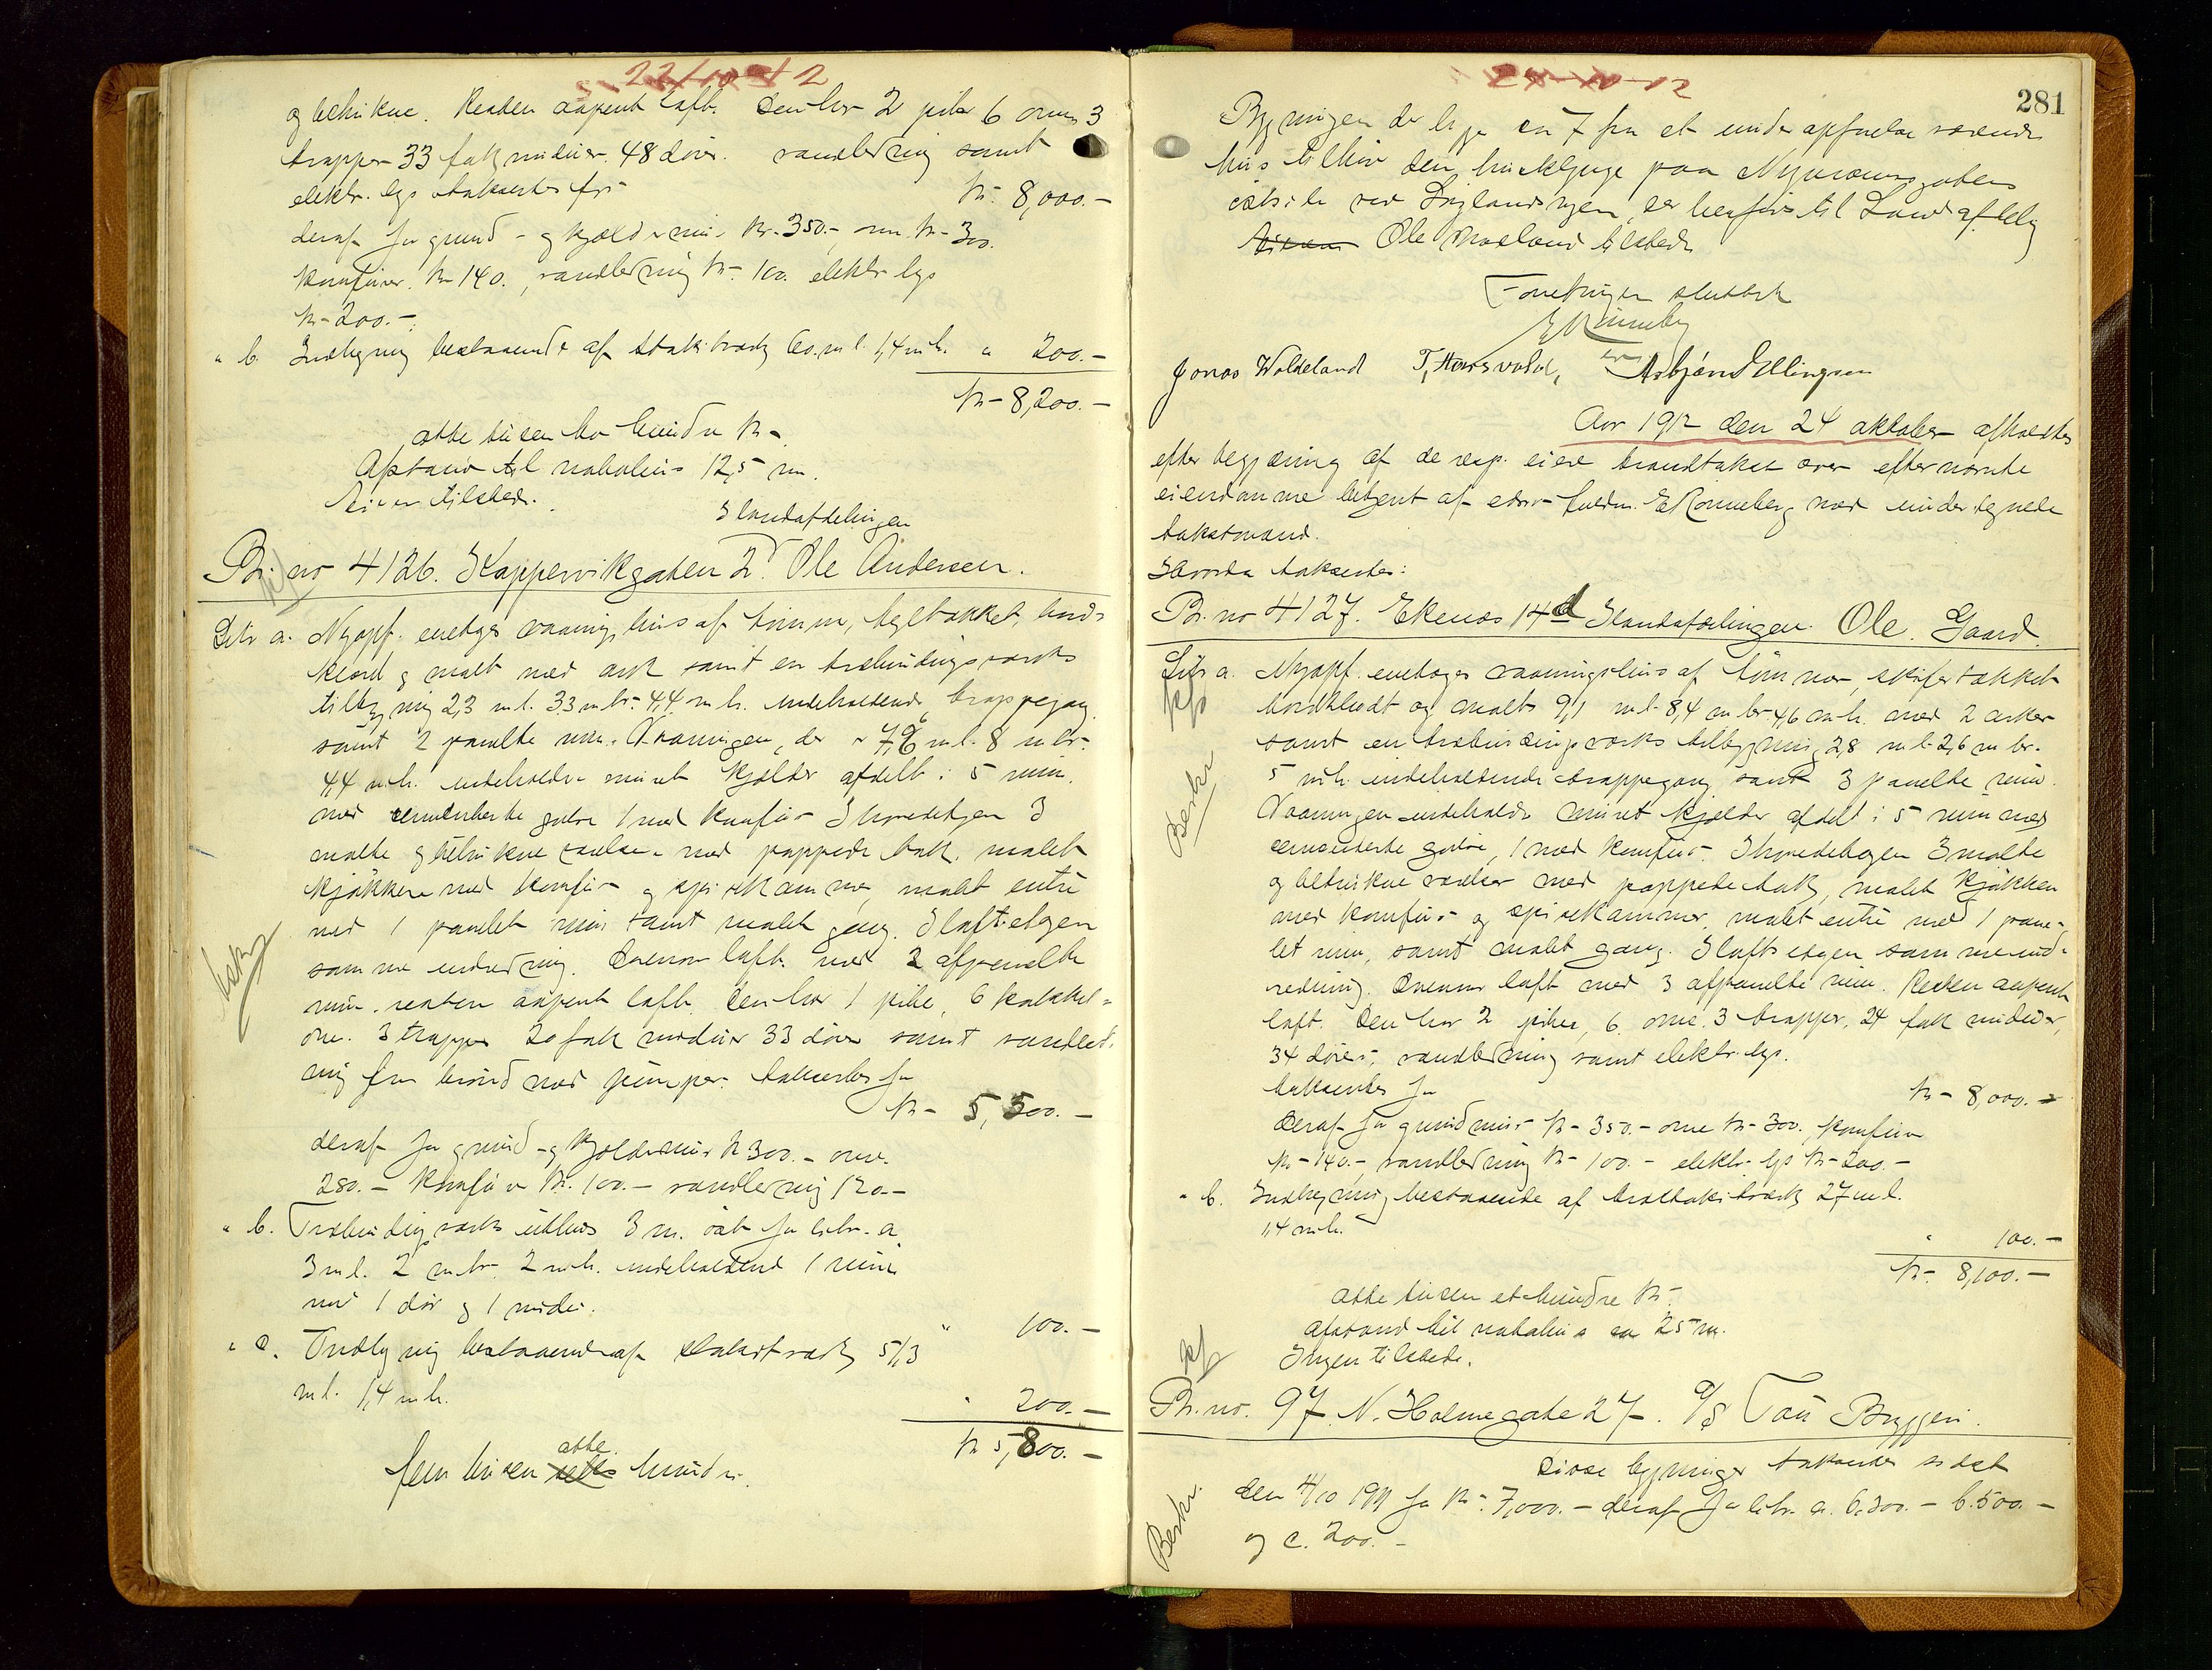 22/10-12
og betrukne. Resten aapent loft. Den har 2 piber 6 ovne 3
trapper 33 fak vinduer. 48 døre. vandledning samt
elektr. lys taksertes for Kr. 8,000.-
deraf for grund- og kjældermur Kr. 350.-, ovne Kr. 300.
Komfurer Kr 140., vandledning Kr. 100. elektr lys
Kr 200.-
" b. Indhegning bestaaende af stakitværk 60. m l. 1,4 m h. " 200.-
Kr 8,200.-
otte tusen to hundre Kr.
Afstand til nabohus 12,5 m.
Eieren tilstede.
I landafdelingen
Br. no 4126. Kappervikgaden 2. Ole Andersen.
Litr a. Nyopf. enetages vaaningshus af tømmer, tegltækket, bord-
klædt og malt med ark samt en træbindingsværks
tilbygning 2,3 m l. 3,3 m br. 4,4 m h. indeholdende trappegang
samt 2 panelte rum. Vaaningen, der er 7,6 m l. 8 m br.
4,4 m h. indeholder muret kjælder afdelt i 5 rum.
med cementerte gulve 1 med komfur. I hovedetagen 3
malte og betrukne værelser med pappede tak, malet
kjøkken med komfur og spisekammer, malet entre
med 1 panelet rum samt malet gang. I loftsetagen
samme indredning. Ovenover loft med 2 afpanelte
rum. resten aapent loft. Den har 1 pibe, 6 kakkel-
ovne. 3 trapper 20 fak vinduer 33 døre samt vandled-
ning fra brønd med pumper. taksertes for
Kr 5,500.-
deraf for grund- og kjældermur Kr 300.- ovne.
280.- Komfur Kr. 100.- vandledning 120.-
" b. Træbindingsværks uthus 3 m. øst for litr. a
3 m l. 2 m br. 2 m h. indeholdende 1 rum
med 1 dør og 1 vindu. " 100.-
" c. Indhegning bestaaende af stakitværk 51,3
m l. 1,4 m h. " 200.-
Kr 5,800.-
otte
fem tusen hundre.
24-10-12
281
Bygningen der ligger ca 7 m fra et under opførelse værende
hus tilhører den husklynge paa Nymansgatens
østside ved Byglandsveien, der henføres til Landafdeling
Ole Moeland tilstede
Forretningen sluttet
E Rønneberg
Jonas Woldeland T, Horsvold, Asbjørn Ellingsen
Aar 1912 den 24 oktober afholdtes
efter begjæring af de resp. eiere brandtakst over efternævnte
eiendomme betjent af edsv. fuldm. E Rønneberg med undertegnede
takstmænd.
Hvorda taksertes:
Br. no 4127. Ekenes 14 d I landafdelingen. Ole. Gaard.
Litr a. Nyopf. enetages vaaningshus af tømmer, skifertækket
bordklædt og malt 9,1 m l. 8,4 m br. 4,6 m h. med 2 arker
samt en træbindingsværks tilbygning 2,8 m l. 2,6 m br.
5 m h. indeholdende trappegang samt 3 panelte rum.
Vaaningen indeholder muret kjælder afdelt i 5 rum med
cementerte gulve, 1 med komfur. I hovedetagen 3 malte
og betrukne værelser med pappede tak, malet kjøkken
med komfur og spisekammer, malet entre med 1 pane-
let rum, samt malet gang. I loftsetagen samme ind-
redning. Ovenover loft med 3 afpanelte rum. Resten aapent
loft. Den har 2 piber, 6. ovne. 3 trapper. 24 fak vinduer,
34 døre, vandledning samt elektr. lys.
taksertes for Kr 8,000.-
deraf for grundmur Kr 350.- ovne Kr 300., komfur
Kr 140.- vandledning Kr 100.- elektr. lys Kr 200.-
" b. Indhegning bestaaende af træstakitværk 27 m l.
1,4 m h. " 100.-
Kr. 8,100.-
otte tusen et hundre Kr.
Afstand til nabohus ca 25 m.
Ingen tilstede.
Br. no. 97 N. Holmegate 27. A/S Tou Bryggeri.
Disse bygninger takserdes sidst
den 4/10 1911 for Kr. 7,000.- deraf for litr. a. 6,300.- b. 500.-
og c. 200.-
Beskr
Beskr.